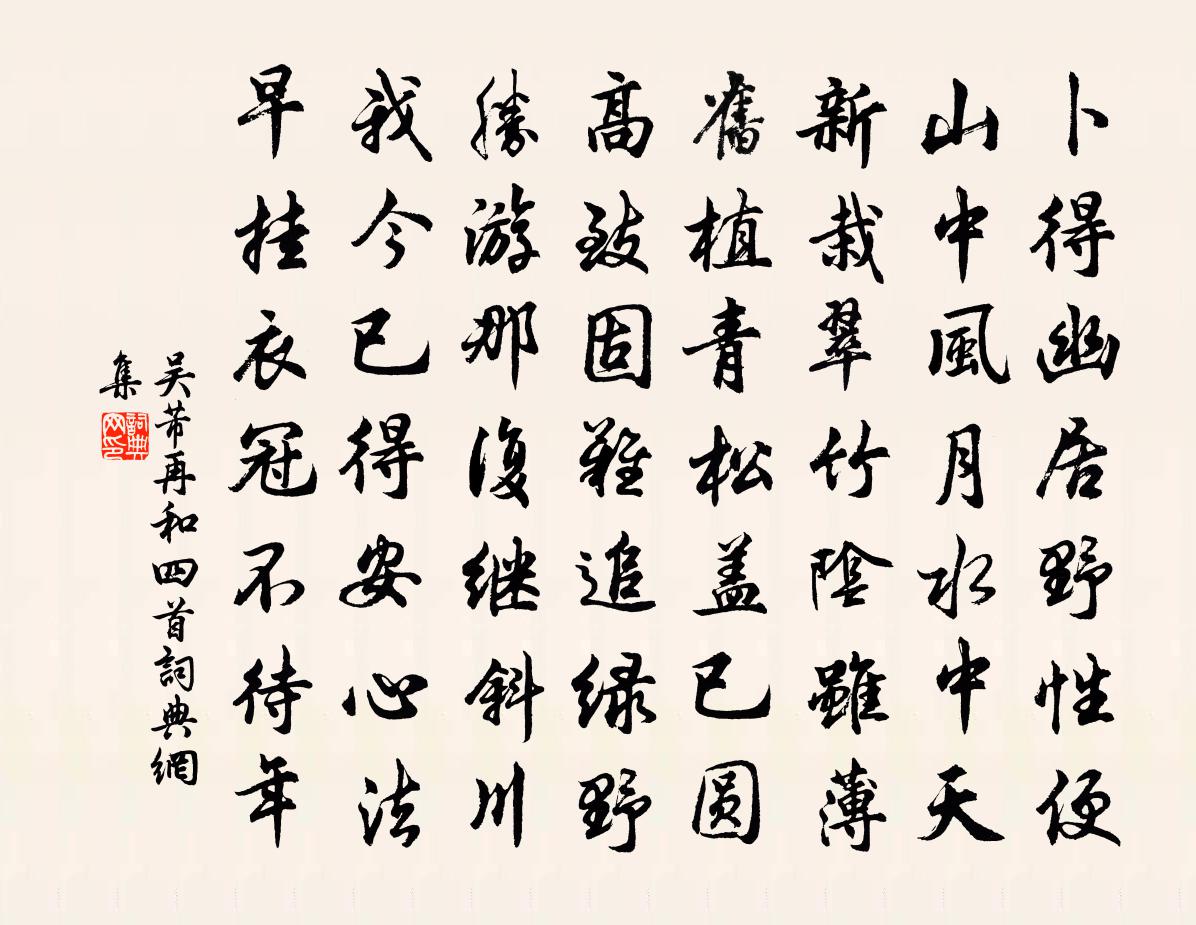 卜得幽居野性便
山中風月水中天
新栽翠竹陰雖薄
舊植青松蓋已圓
高致固難追绿野
勝游那復继斜川
我今已得安心法
早挂衣冠不待年
吴芾再和四首詞典網
集
詞典
网印